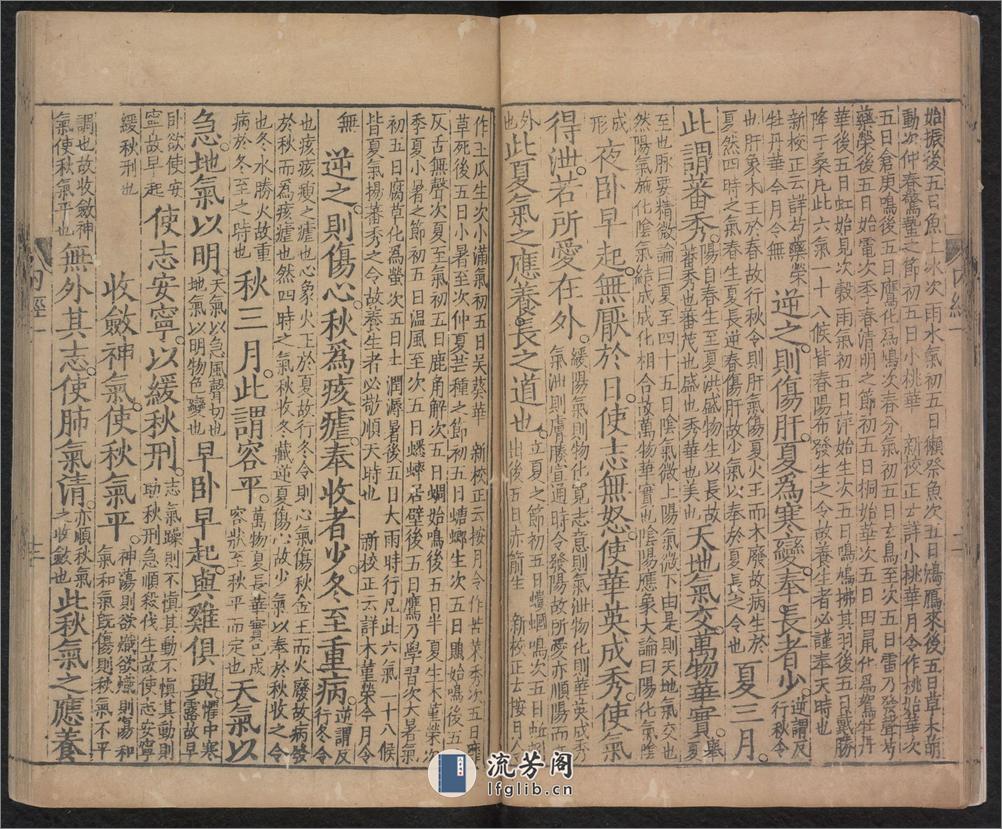 始振後五日魚上氷次雨水氣初五日獺祭魚次五日鴻鴈來後五日草木萌
動次仲春驚蟄之節初五日小桃華 新校正云詳小桃華月令作桃始華次
五日倉庚鳴後五日鷹化為鳩次春分氣初五日玄鳥至次五日雷乃發聲芍
藥榮後五日始電次季春清明之節初五日桐始華次五日田鼠化為鴽牡丹
華後五日虹始見次穀雨氣初五日萍始生次五日鳴鳩拂其羽後五日戴勝
降于桑凡此六氣一十八候皆春陽布發生之令故養生者必謹奉天時也
新校正云詳芍藥榮
牡丹華今月令無
逆之則傷肝。夏為寒變。奉長者少。
逆謂反
行秋令
也肝象木王於春故行秋令則肝氣傷夏火王而木廢故病生於
夏然四時之氣春生夏長逆春傷肝故少氣以奉於夏長之令也
夏三月。
此謂蕃秀。
陽自春生至夏洪盛物生以長故
蕃秀也蕃茂也盛也秀華也美也
天地氣交。萬物華實。
舉
夏
至也脉要精微論曰夏至四十五日陰氣微上陽氣微下由是則天地氣交也
然陽氣施化陰氣結成成化相合故萬物華實也陰陽應象大論曰陽化氣陰
成
形
夜卧早起。無厭於日。使志無怒。使華英成秀。使氣
得泄。若所愛在外。
緩陽氣則物化寬志意則氣泄物化則華英成秀
氣泄則膚腠宣通時令發陽故所愛亦順陽而在
外
也
此夏氣之應。養長之道也。
立夏之節初五日螻蟈鳴次五日蚯蚓
出後五日赤箭生 新校正云按月令
內經一
二
作王瓜生次小滿氣初五日吴葵華 新校正云按月令作苦菜秀次五日靡
草死後五日小暑至次仲夏芒種之節初五日螗螂生次五日鵙始鳴後五日
反舌無聲次夏至氣初五日鹿角解次五日蜩始鳴後五日半夏生木菫榮次
季夏小暑之節初五日温風至次五日蟋蟀居壁後五日鷹乃學習次大暑氣
初五日腐草化為螢次五日土潤溽暑後五日大雨時行凡此六氣一十八候
皆夏氣揚蕃秀之令故養生者必敬順天時也 新校正云詳木菫榮今月令
無
逆之則傷心。秋為痎瘧。奉收者少。冬至重病。
逆謂反
行冬令
也痎痎瘦之瘧也心象火王於夏故行冬令則心氣傷秋金王而火廢故病發
於秋而為痎瘧也然四時之氣秋收冬藏逆夏傷心故少氣以奉於秋收之令
也冬水勝火故重
病於冬至之時也
秋三月。此謂容平。
萬物夏長華實已成
容狀至秋平而定也
天氣以
急。地氣以明。
天氣以急風聲切也
地氣以明物色變也
早卧早起。與雞俱興。
懼中寒
露故早
卧欲使安
寧故早起
使志安寧。以緩秋刑。
志氣躁則不慎其動不慎其動則
助秋刑急順殺伐生故使志安寧
緩秋刑也
收斂神氣。使秋氣平。
神蕩則欲熾欲熾則傷和
氣和氣既傷則秋氣不平
調也故收斂神
氣使秋氣平也
無外其志。使肺氣清。
亦順秋氣
之收斂也
此秋氣之應。養
內經一
三
流芳阁
lfglib.cn